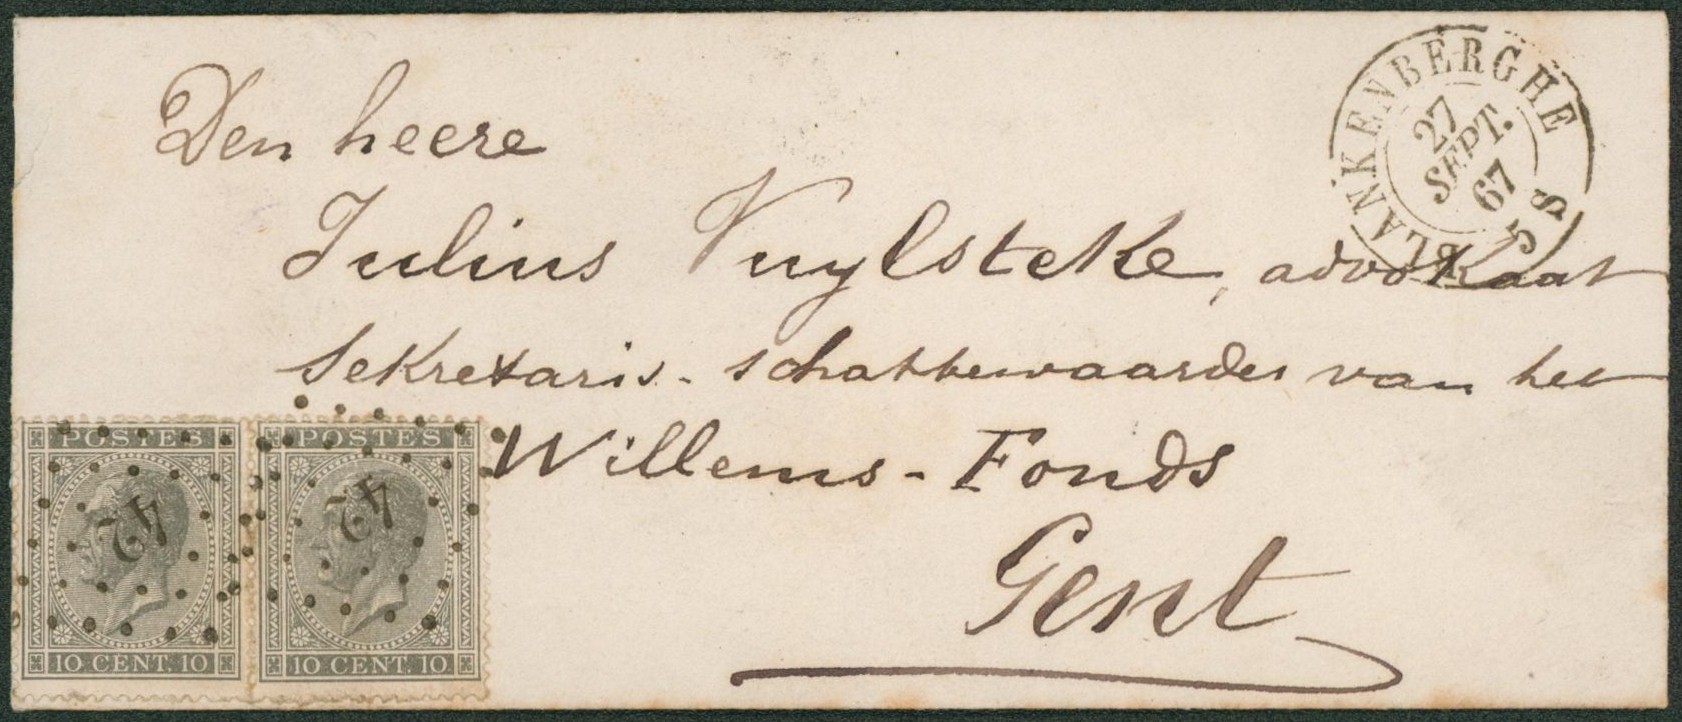 BLANKENBERGHE
27
SEPT.
67
5 S
Den heere
Julius Vuylsteke, advokaat
Sekretaris-schattbewaarder van het
Willems-Fonds
Gent
POSTES
42
10 CENT. 10
POSTES
42
10 CENT. 10